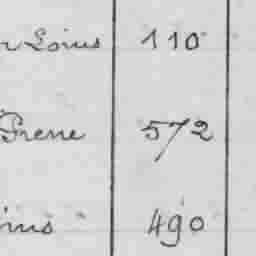 r Louis 110
Irene 572
490